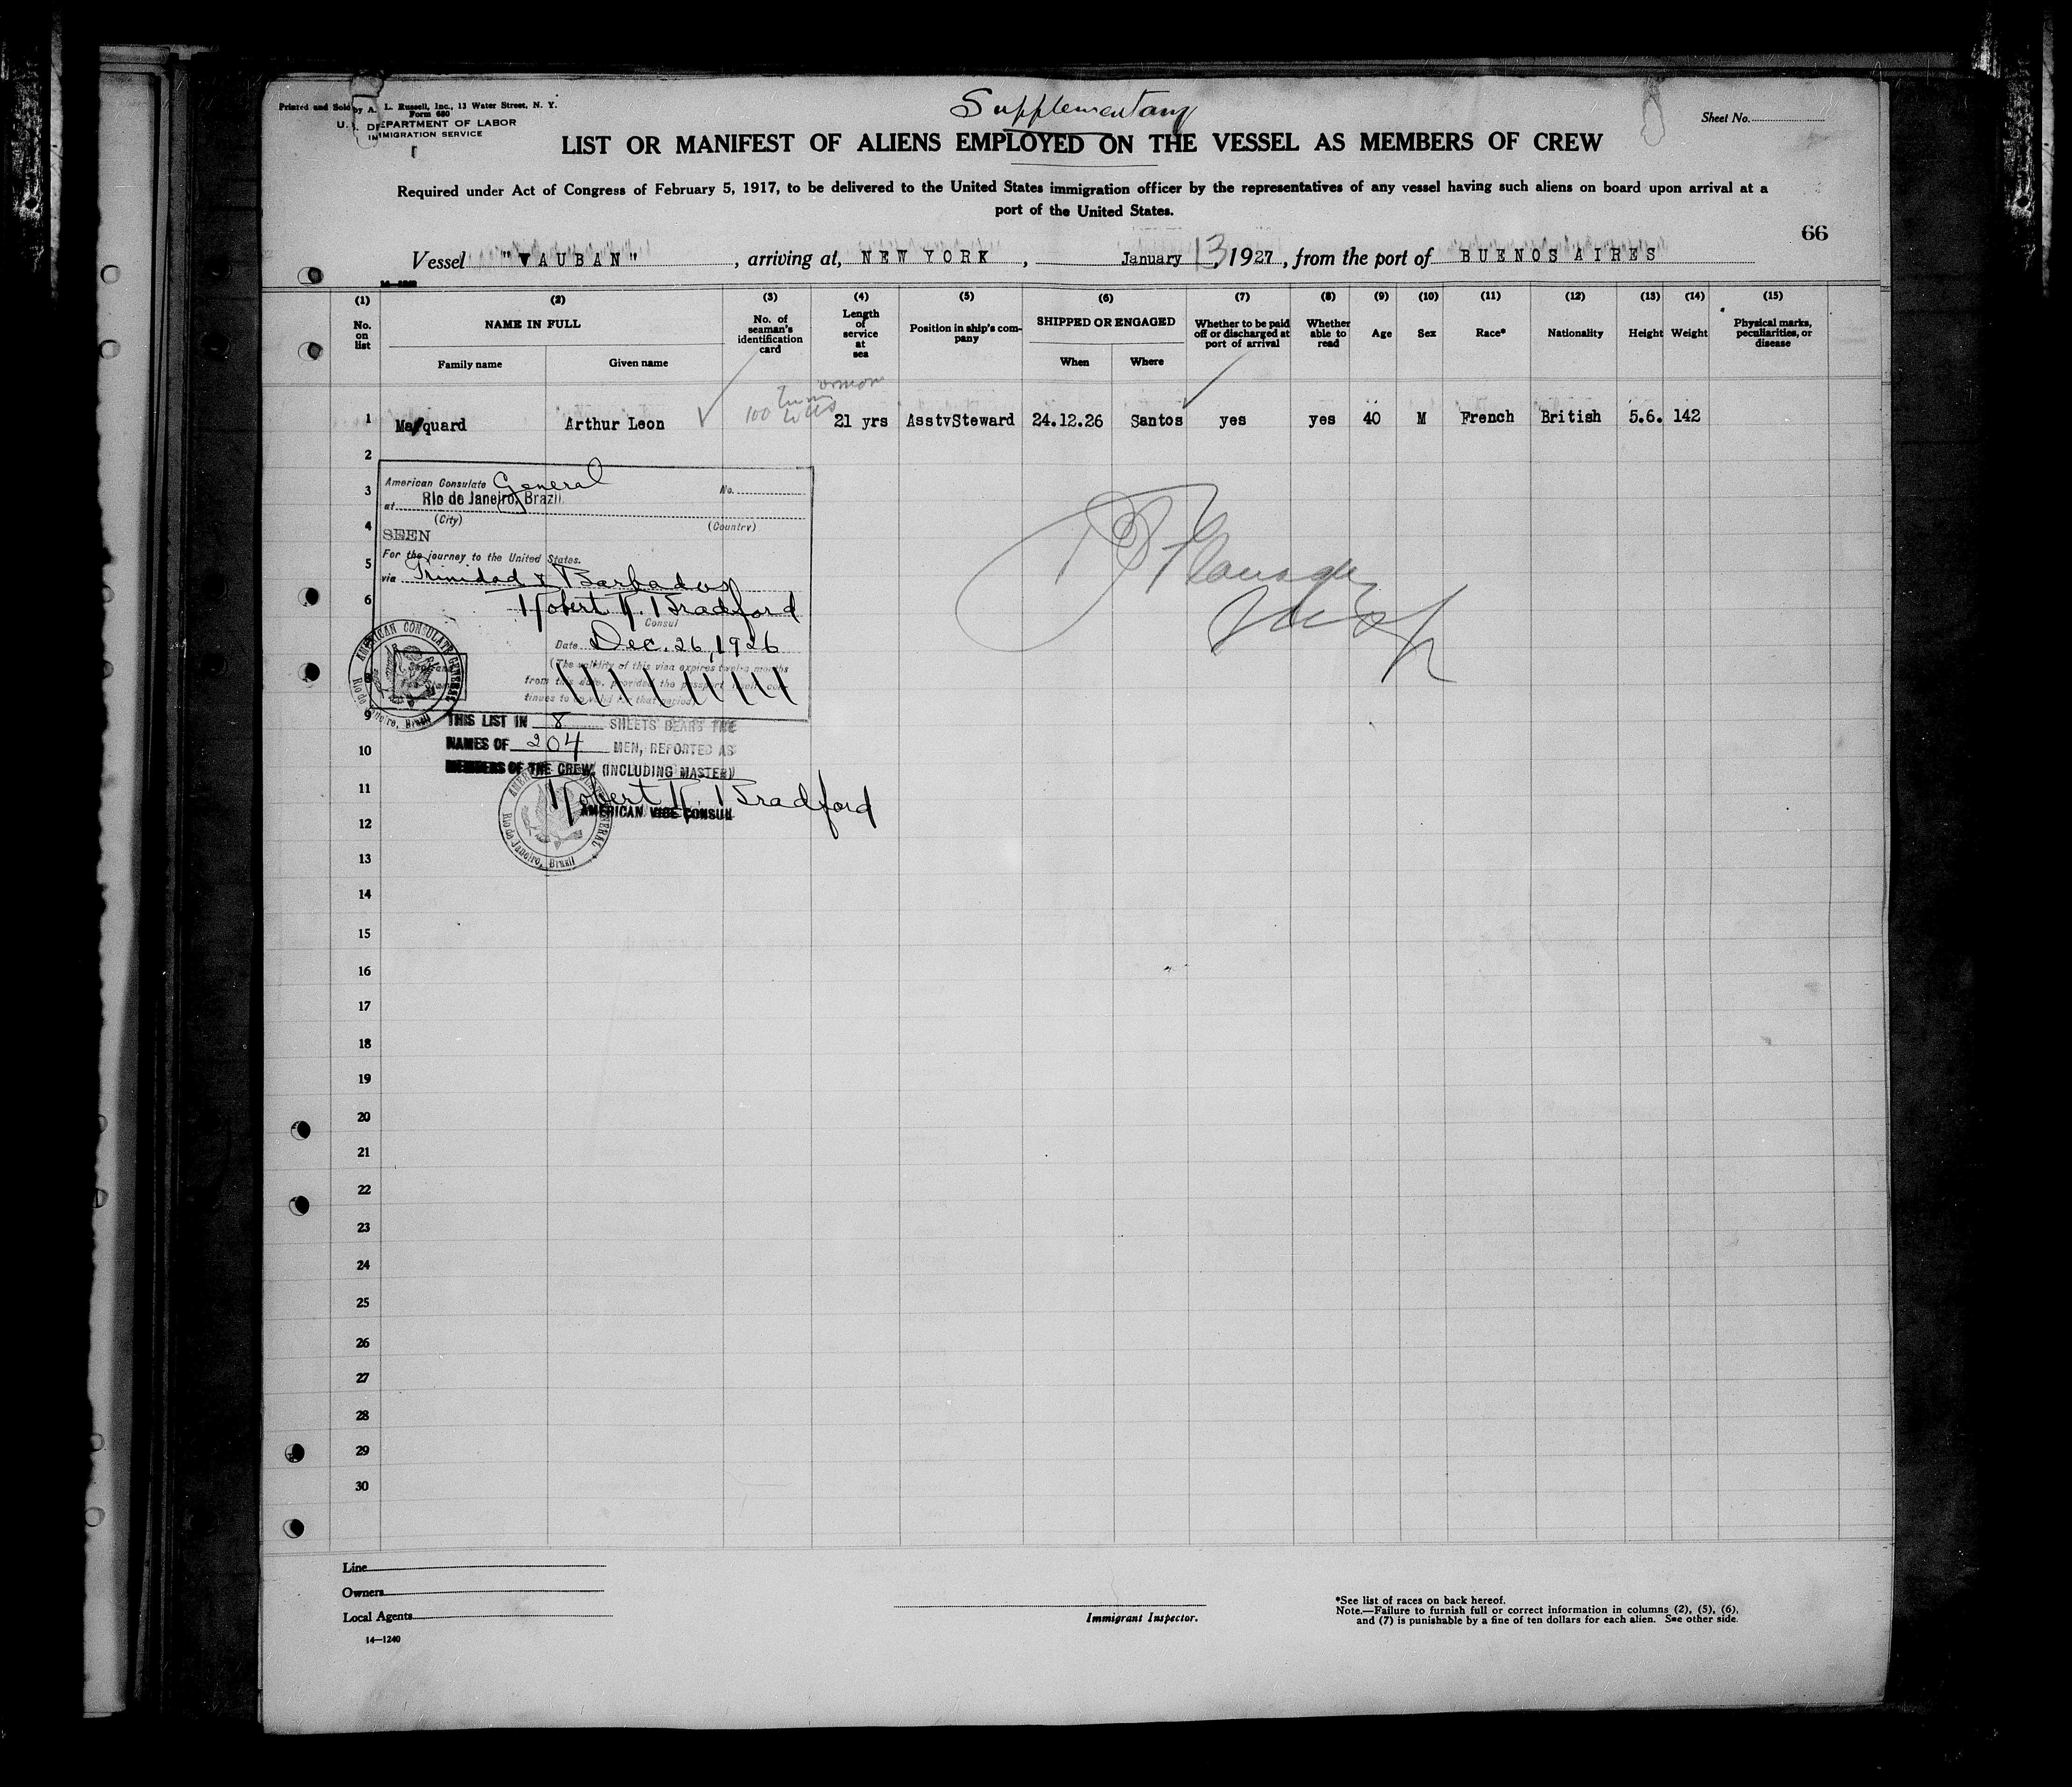 Printed and Sold by A. L. Russell, Inc., 13 Water Street, N. Y.
Form 680
U. S. DEPARTMENT OF LABOR
IMMIGRATION SERVICE
Supplementary
Sheet No.
LIST OR MANIFEST OF ALIENS EMPLOYED ON THE VESSEL AS MEMBERS OF CREW
Required under Act of Congress of February 5, 1917, to be delivered to the United States immigration officer by the representatives of any vessel having such aliens on board upon arrival at a
port of the United States.
66
Vessel "VAUBAN", arriving at, NEW YORK, January 13, 1927, from the port of BUENOS AIRES
(1) (2) (3) (4) (5) (6) (7) (8) (9) (10) (11) (12) (13) (14) (15)
No. on list
NAME IN FULL
Family name
Given name
No. of seaman's identification card
Length of service at sea
Position in ship's company
SHIPPED OR ENGAGED
When
Where
Whether to be paid off or discharged at port of arrival
Whether able to read
Age
Sex
Race*
Nationality
Height
Weight
Physical marks, peculiarities, or disease
1 Marquard Arthur Leon 21 yrs AsstvSteward 24.12.26 Santos yes yes 40 M French British 5.6. 142
2
3
4
5
6
American Consulate General
No.
at Rio de Janeiro, Brazil.
(City) (Country)
SEEN
For the journey to the United States.
via Trinidad & Barbados
Robert R. Bradford
Consul
Date Dec. 26, 1926
(The validity of this visa expires twelve months
from this date, provided the passport itself con-
tinues to be valid for that period)
AMERICAN CONSULATE GENERAL
Rio de Janeiro, Brazil
8
9
THIS LIST IN 8 SHEETS BEARS THE
NAMES OF 204 MEN, REPORTED AS
MEMBERS OF THE CREW, (INCLUDING MASTER)
Robert R. Bradford
AMERICAN VICE CONSUL
Rio de Janeiro, Brazil
10
11
12
13
14
15
16
17
18
19
20
21
22
23
24
25
26
27
28
29
30
Line
Owners
Local Agents
14—1240
Immigrant Inspector.
*See list of races on back hereof.
Note.—Failure to furnish full or correct information in columns (2), (5), (6),
and (7) is punishable by a fine of ten dollars for each alien. See other side.